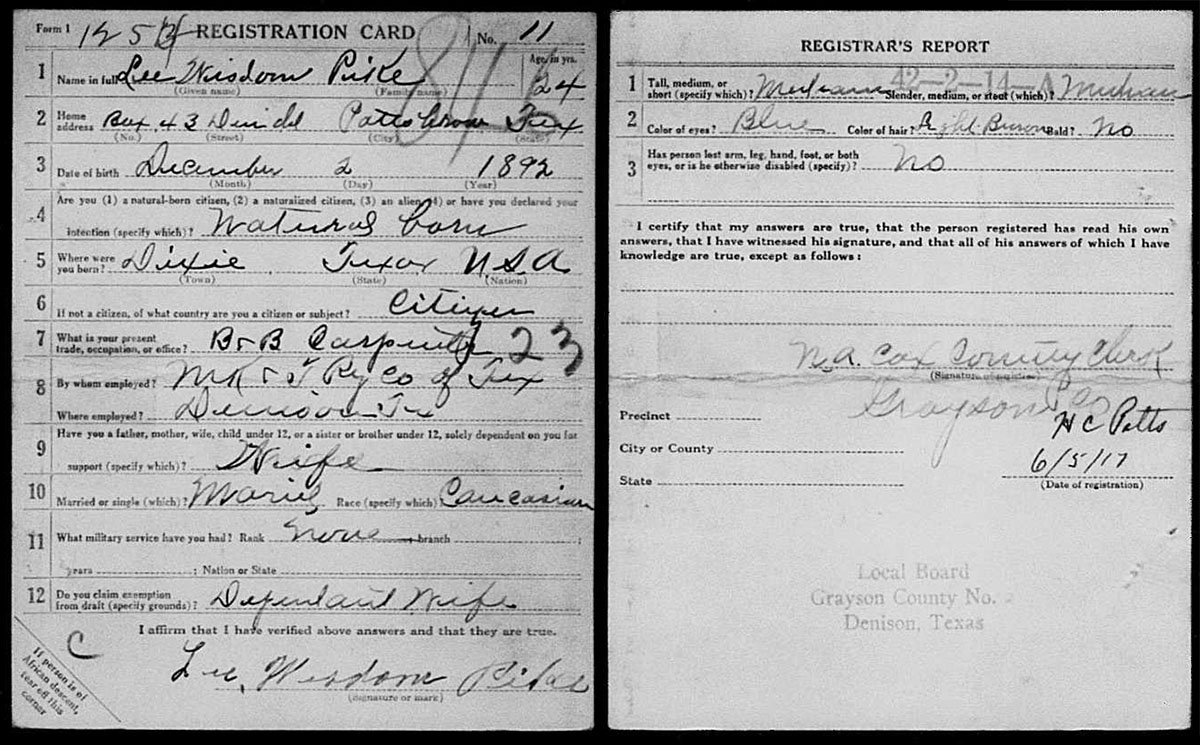 Form 1 REGISTRATION CARD No. 11
1 Name in full Lee Wisdom Pike Age, in yrs. 24
(Given name) (Family name)
2 Home address Box 43 Pottsboro Tex
(No.) (Street) (City) (State)
3 Date of birth December 2 1892
(Month) (Day) (Year)
4 Are you (1) a natural-born citizen, (2) a naturalized citizen, (3) an alien, (4) or have you declared your
intention (specify which)? Natural born
5 Where were you born? Dixie Texas U.S.A
(Town) (State) (Nation)
6 If not a citizen, of what country are you a citizen or subject? Citizen
7 What is your present trade, occupation, or office? B & B Carpenter 23
8 By whom employed? MK & T Ry Co of Tex
Where employed? Denison Tex
9 Have you a father, mother, wife, child under 12, or a sister or brother under 12, solely dependent on you for
support (specify which)? Wife
10 Married or single (which)? Married Race (specify which)? Caucasian
11 What military service have you had? Rank None branch
years ; Nation or State
12 Do you claim exemption from draft (specify grounds)? Dependant Wife
I affirm that I have verified above answers and that they are true.
C
Lee Wisdom Pike
(Signature or mark)
If person is of
African descent,
tear off this
corner
REGISTRAR'S REPORT
42-2-14-A
1 Tall, medium, or short (specify which)? Medium Slender, medium, or stout (which)? Medium
2 Color of eyes? Blue Color of hair? Light Brown Bald? No
3 Has person lost arm, leg, hand, foot, or both
eyes, or is he otherwise disabled (specify)? No
I certify that my answers are true, that the person registered has read his own
answers, that I have witnessed his signature, and that all of his answers of which I have
knowledge are true, except as follows:
N.A. Cox County Clerk
(Signature of registrar)
Grayson Co
Precinct H C Potts
City or County
6/5/17
State
(Date of registration)
Local Board
Grayson County No. 2
Denison, Texas